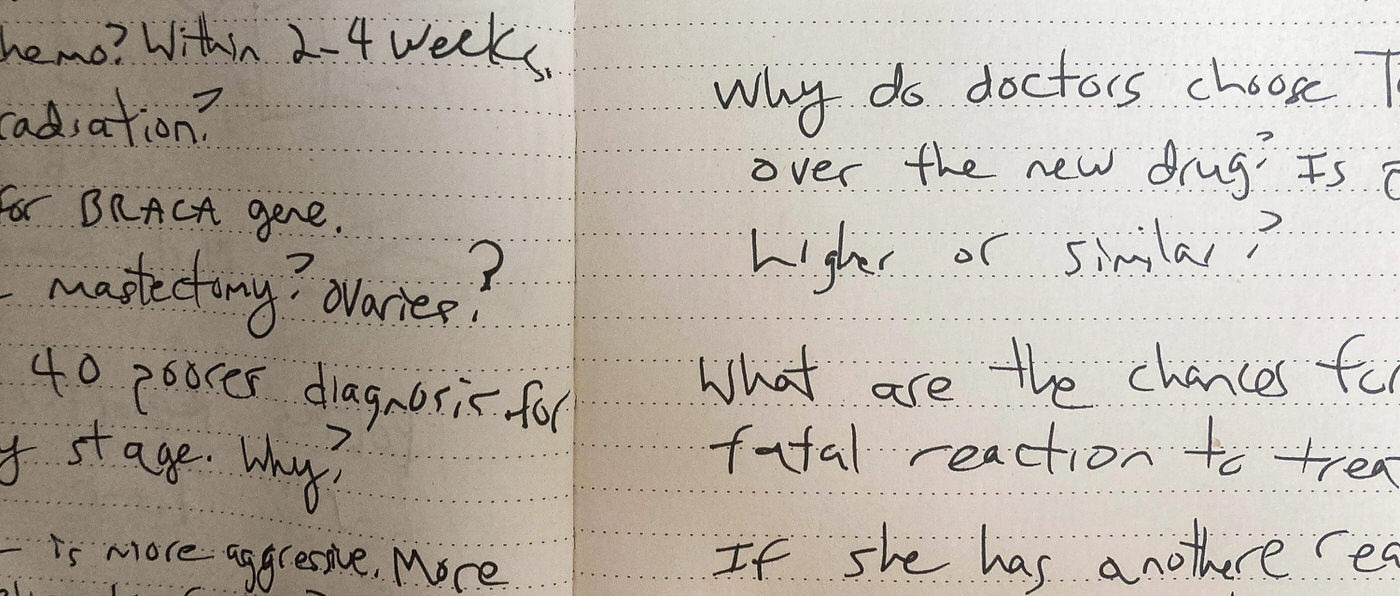 hemo? Within 2-4 weeks.
radiation?
for BRACA gene.
- mastectomy? ovaries?
40 poorer diagnosis for
y stage. Why?
- is more aggressive. More
Why do doctors choose T
over the new drug? Is
higher or similar?
What are the chances for
fatal reaction to trea
If she has anothere rea